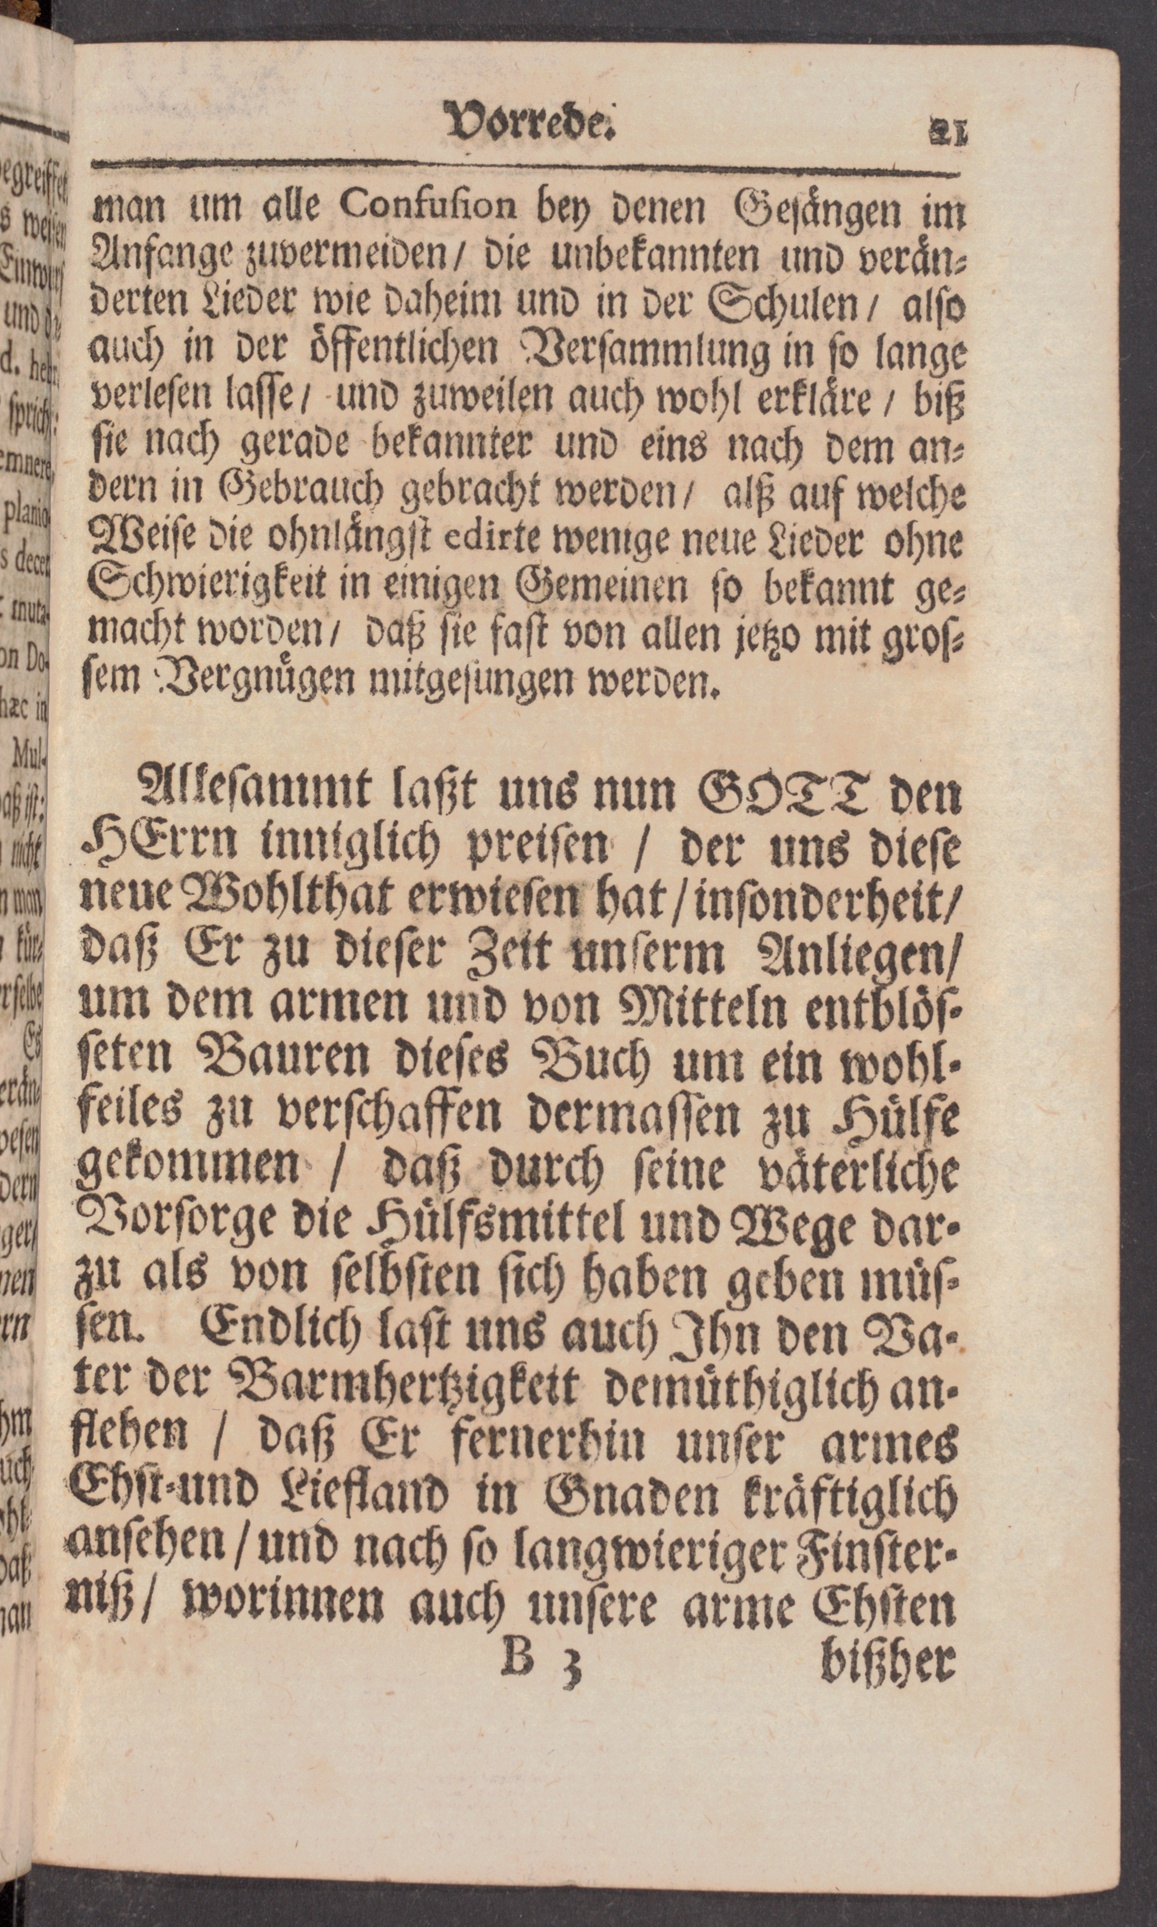 Vorrede. 21
man um alle Confusion bey denen Gesängen im
Anfange zuvermeiden/ die unbekannten und verän-
derten Lieder wie daheim und in der Schulen/ also
auch in der öffentlichen Versammlung in so lange
verlesen lasse/ und zuweilen auch wohl erkläre / biß
sie nach gerade bekannter und eins nach dem an-
dern in Gebrauch gebracht werden/ alß auf welche
Weise die ohnlängst edirte wenige neue Lieder ohne
Schwierigkeit in einigen Gemeinen so bekannt ge-
macht worden/ daß sie fast von allen jetzo mit gros-
sem Vergnügen mitgesungen werden.
Allesammt laßt uns nun GOTT den
HErrn inniglich preisen / der uns diese
neue Wohlthat erwiesen hat/ insonderheit/
daß Er zu dieser Zeit unserm Anliegen/
um dem armen und von Mitteln entblös-
seten Bauren dieses Buch um ein wohl-
feiles zu verschaffen dermassen zu Hülfe
gekommen / daß durch seine väterliche
Vorsorge die Hülfsmittel und Wege dar-
zu als von selbsten sich haben geben müs-
sen. Endlich last uns auch Ihn den Va-
ter der Barmhertzigkeit demüthiglich an-
flehen / daß Er fernerhin unser armes
Ehst-und Liefland in Gnaden kräftiglich
ansehen / und nach so langwieriger Finster-
niß/ worinnen auch unsere arme Ehsten
B 3 bißher